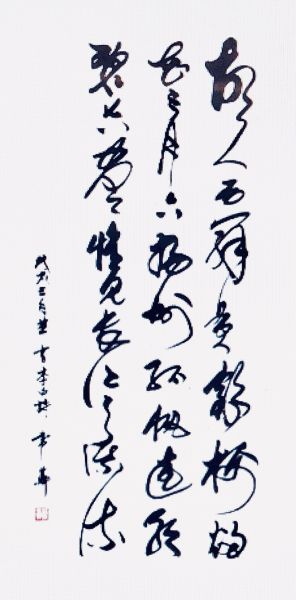 故人西辞黄鹤楼烟
花三月下扬州孤帆远影
碧空尽惟见长江天际流
书李白诗